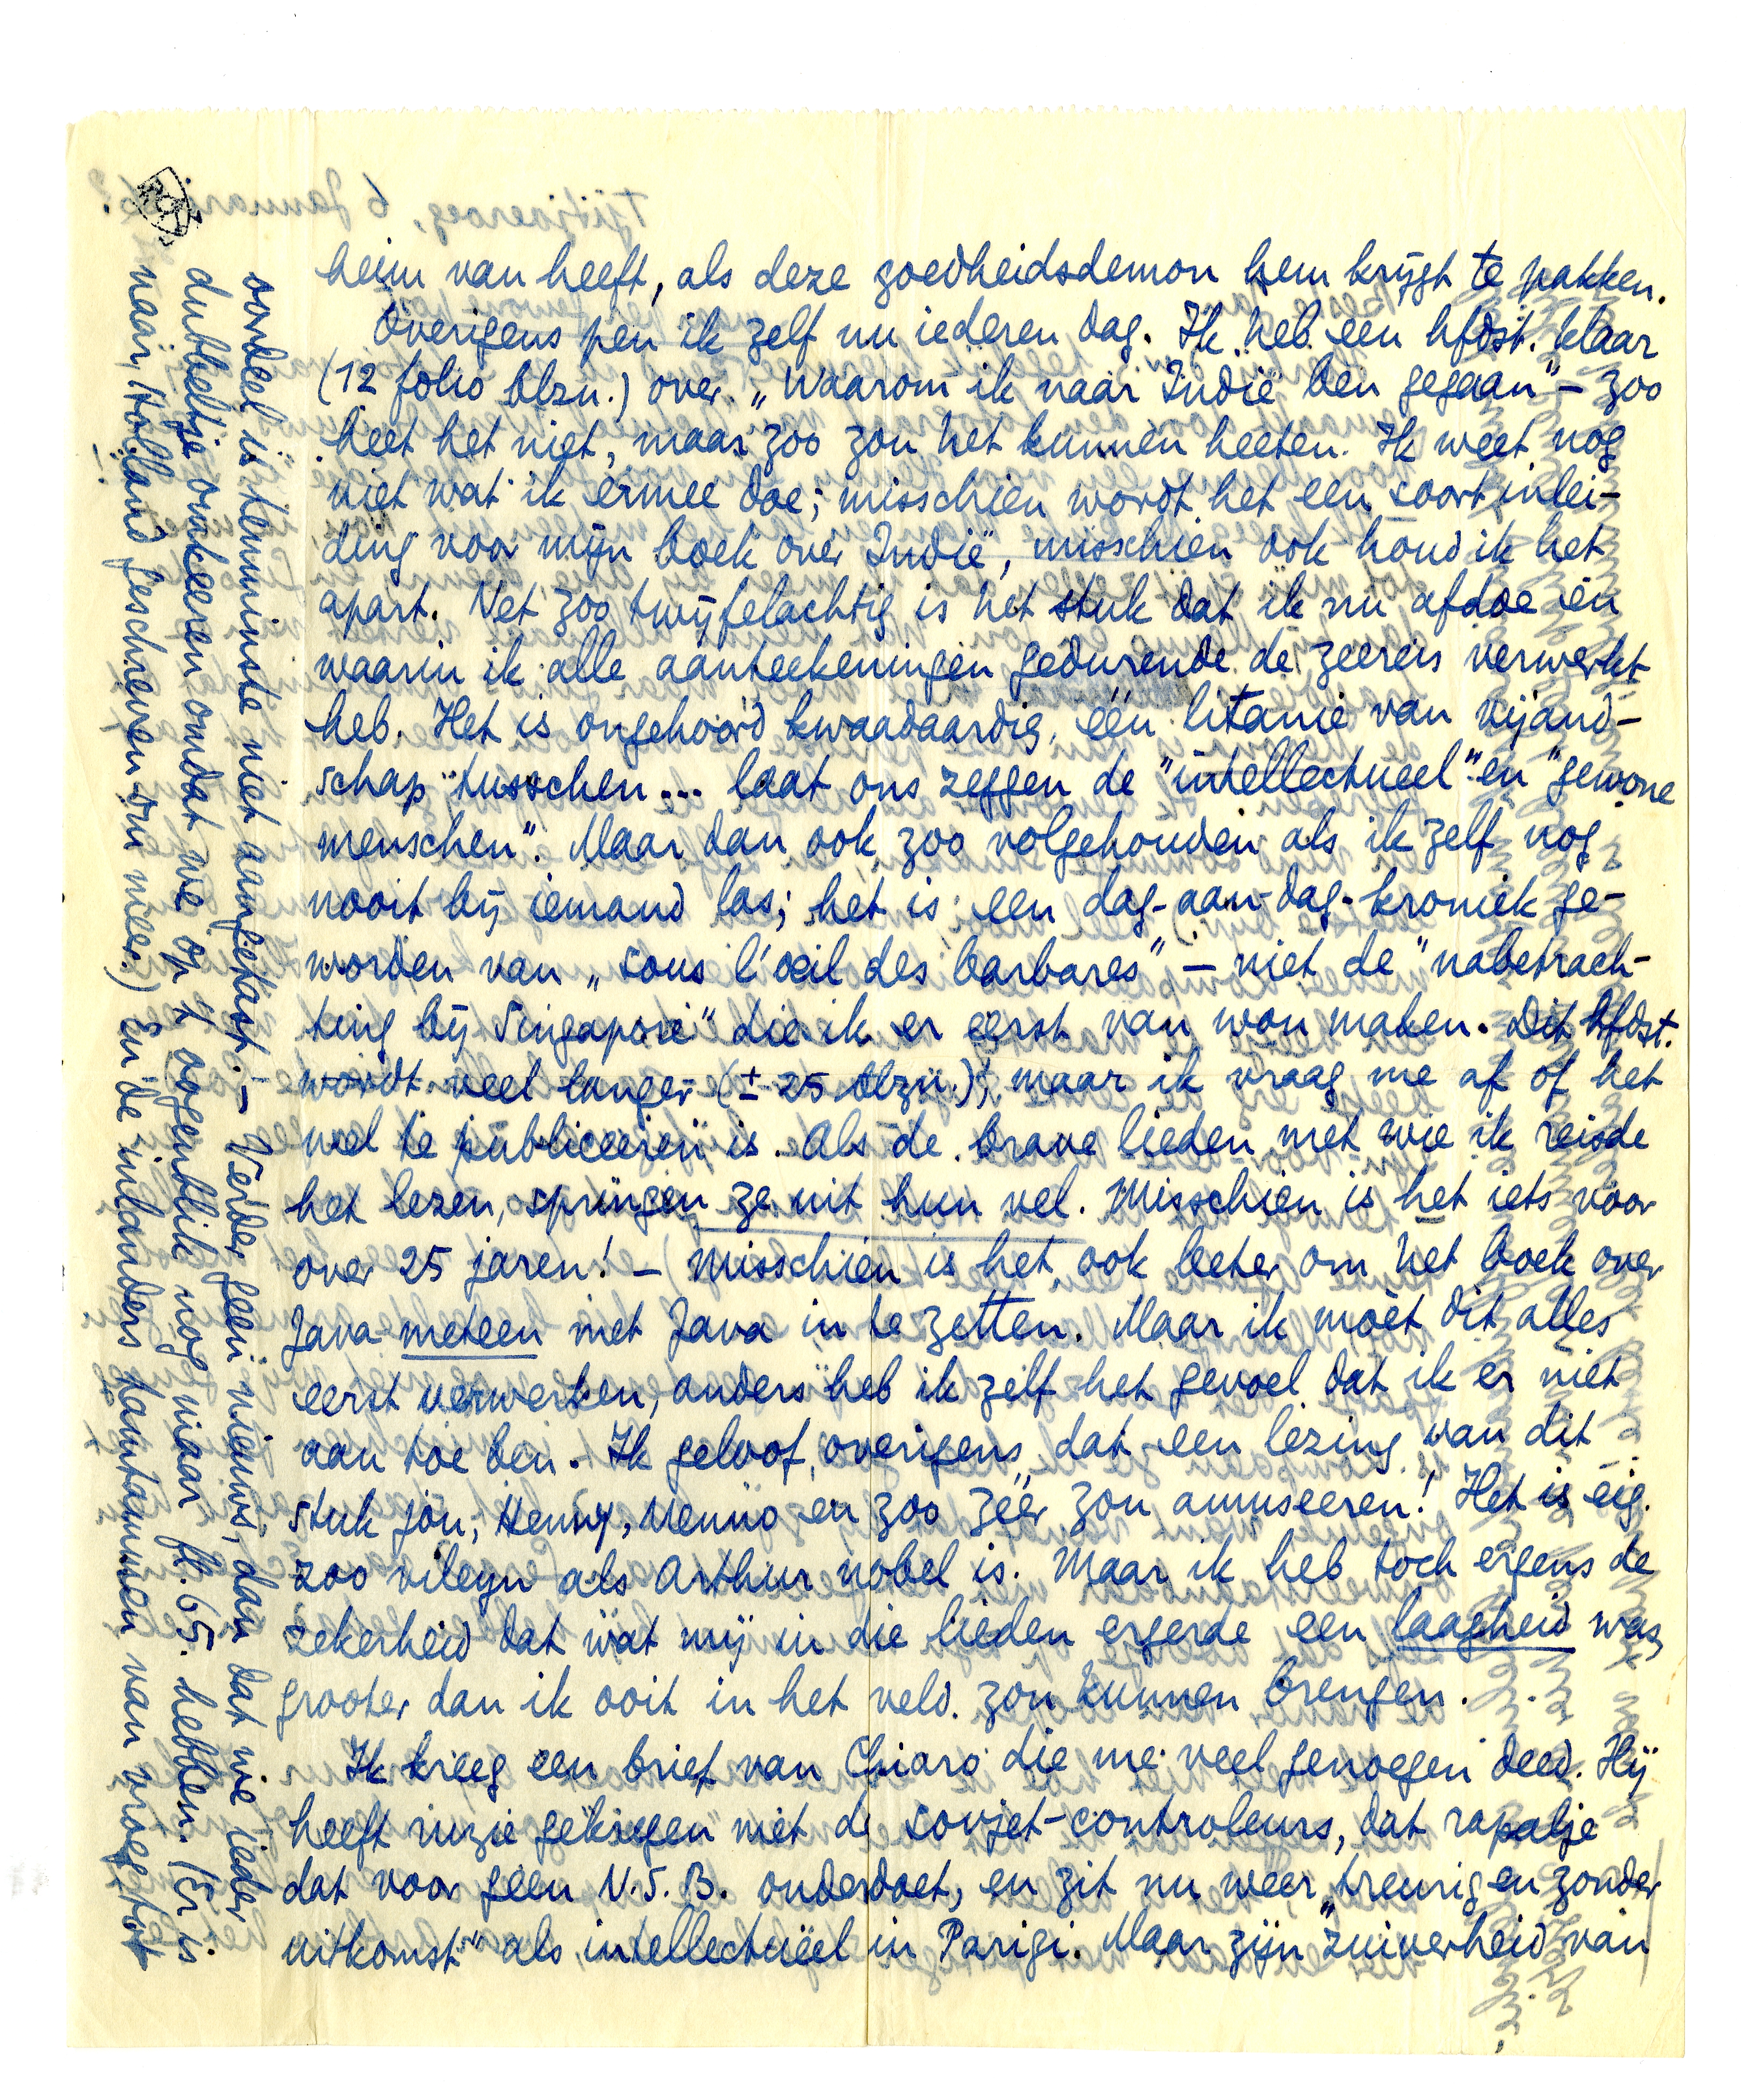 heim van heeft, als deze goedheidsdemon hem krijgt te pakken.
Overigens pen ik zelf nu iederen dag. Ik heb een hfdst. klaar
(12 folio blzn.) over „waarom ik naar Indië ben gegaan" – zoo
heet het niet, maar zoo zou het kunnen heeten. Ik weet nog
niet wat ik ermee doe; misschien wordt het een soort inlei-
ding voor mijn boek over Indië, misschien ook houd ik het
apart. Net zoo twijfelachtig is het stuk dat ik nu afdoe en
waarin ik alle aanteekeningen gedurende de zeereis verwerkt
heb. Het is ongehoord kwaadaardig, één litanie van vijand-
schap tusschen... laat ons zeggen de "intellectueel" en "gewone
menschen". Maar dan ook zoo volgehouden als ik zelf nog
nooit bij iemand las; het is een dag-aan-dag-kroniek ge-
worden van „sous l'oeil des barbares" – niet de "nabetrach-
ting bij Singapore" die ik er eerst van wou maken. Dit hfdst.
wordt veel langer (± 25 blzn.), maar ik vraag me af of het
wel te publiceeren is. Als de brave lieden met wie ik reisde
het lezen, springen ze uit hun vel. Misschien is het iets voor
over 25 jaren! – Misschien is het ook beter om het boek over
Java meteen met Java in te zetten. Maar ik móét dit alles
eerst verwerken, anders heb ik zelf het gevoel dat ik er niet
aan toe ben. Ik geloof, overigens, dat een lezing van dit
stuk jou, Henny, Menno en zoo zéér zou amuseeren! Het is eig.
zoo vileyn als Arthur nobel is. Maar ik heb toch ergens de
zekerheid dat wat mij in die lieden ergerde een laagheid was,
grooter dan ik ooit in het veld zou kunnen brengen.
Ik kreeg een brief van Chiaro die me veel genoegen deed. Hij
heeft ruzie gekregen met de sovjet-controleurs, dat rapalje
dat voor geen N.S.B. onderdoet, en zit nu weer „treurig en zonder
uitkomst" als intellectueel in Parigi. Maar zijn "zuiverheid van
oordeel is tenminste niet aangetast. – Verder geen nieuws, dan dat we ieder
dubbeltje omkeeren omdat we op 't oogenblik nog maar fl. 65. hebben. (Er is
naar Holland geschreven om meer.) En de inlanders tamtammen van vroeg tot